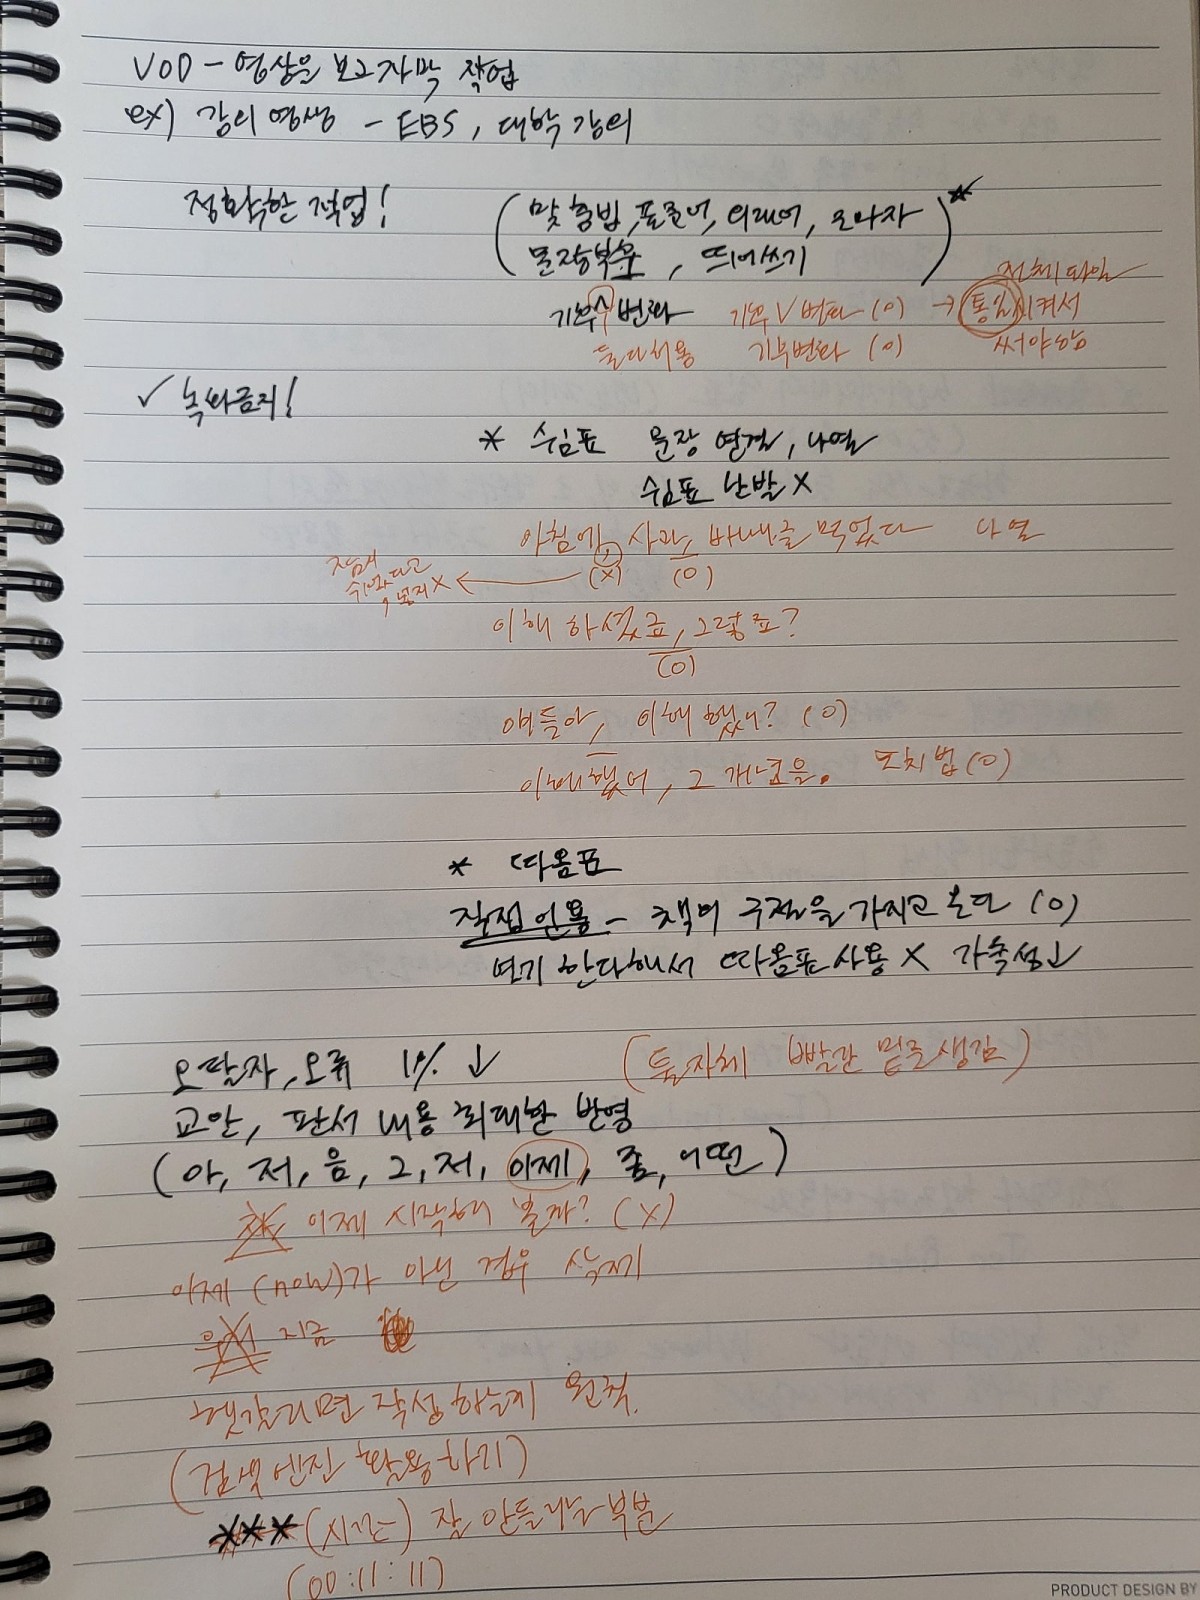 VOD - 영상을 보고 자막 작업
ex) 강의 영상 - EBS, 대학 강의
정확한 작업! (맞춤법, 표준어, 외래어, 오타자
문장부호, 띄어쓰기)*
전체 파일
기후∨변화 기후∨변화 (O) → 통일시켜서
둘다허용 기후변화 (O) 써야함
✓ 녹화금지!
* 쉼표 문장 연결, 나열
쉼표 난발 X
아침에, 사과, 바나나를 먹었다 나열
(X) (O)
쉬었다고
, 넣지 X
이해 하셨죠, 그렇죠?
(O)
얘들아, 이해했니? (O)
이해했어, 그 개념을. 도치법 (O)
* 따옴표
직접 인용 - 책의 구절을 가지고 온다 (O)
연기 한다해서 따옴표 사용 X 가독성↓
오탈자, 오류 1% ↓ (툴 자체 빨간 밑줄 생김)
교안, 판서 내용 최대한 반영
(아, 저, 음, 그, 저, 이제, 좀, 어떤)
이제 시작해 볼까? (X)
이제 (now)가 아닌 경우 삭제
지금
헷갈리면 작성하는게 원칙.
(검색엔진 활용하기)
*** (시간) 잘 안들리는 부분
(00:11:11)
PRODUCT DESIGN BY